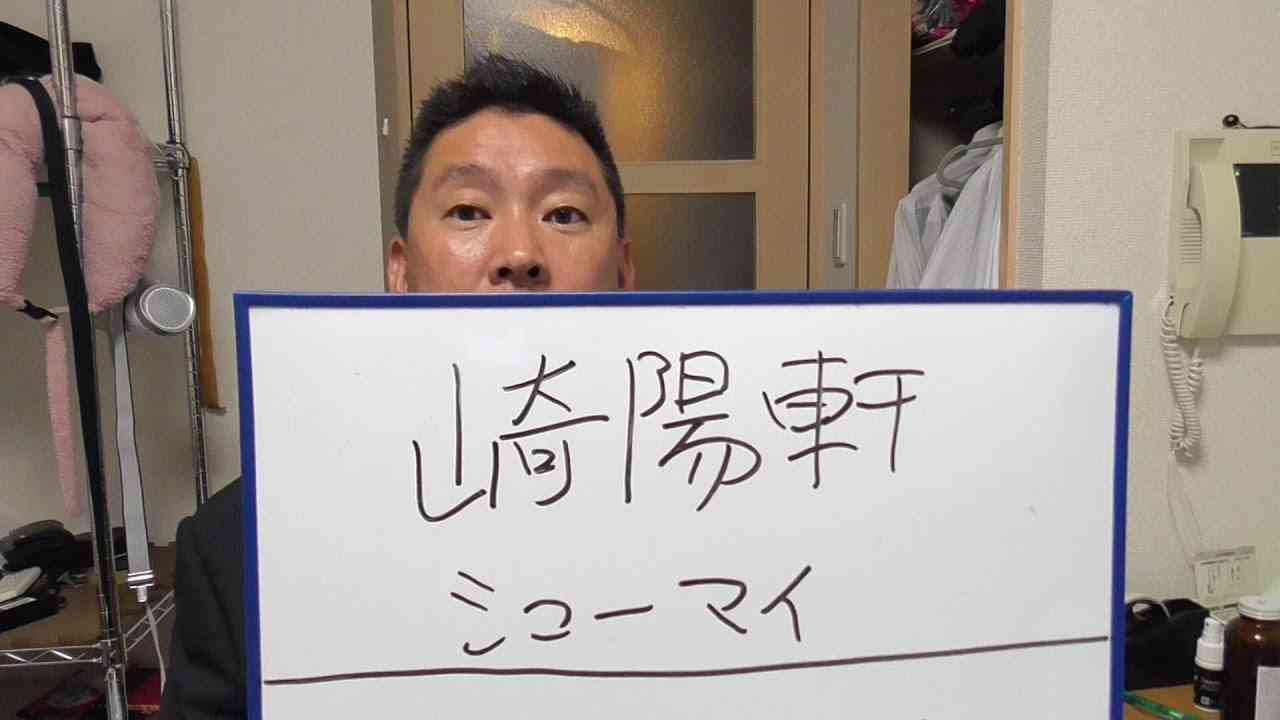 崎陽軒
シューマイ